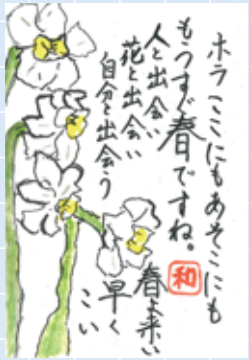 ホラここにもあそこにも
もうすぐ春ですね。
人と出会い
花と出会い
自分と出会う
春よ来い
早く
こい
和